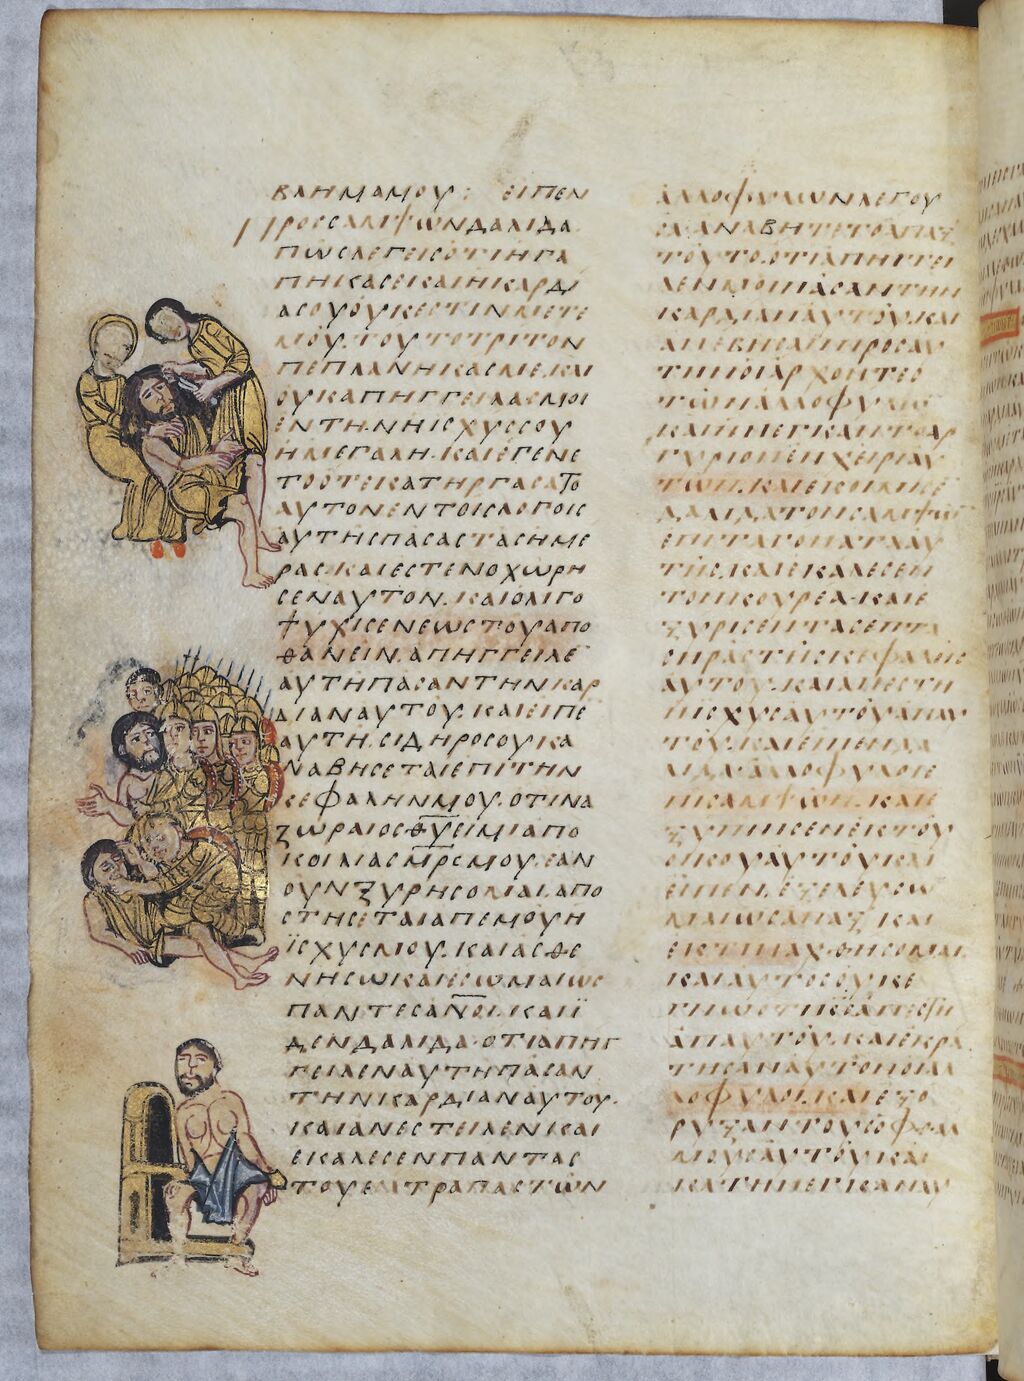 ΒΛΗΜΑΜΟΥ: ΕΙΠΕΝ
ΠΡΟΣΣΑΜΨΩΝΔΑΛΙΔΑ
ΠΩΣΛΕΓΕΙΣΟΤΙΗΓΑ
ΠΗΚΑΣΕΚΑΙΗΚΑΡΔΙ
ΑΣΟΥΟΥΚΕΣΤΙΝΜΕΤΕ
ΜΟΥ. ΤΟΥΤΟΤΡΙΤΟΝ
ΠΕΠΛΑΝΗΚΑΣΜΕ. ΚΑΙ
ΟΥΚΑΠΗΓΓΕΙΛΑΣΜΟΙ
ΕΝΤΙΝΗΙΣΧΥΣΣΟΥ
ΗΜΕΓΑΛΗ. ΚΑΙΕΓΕΝΕ
ΤΟΟΤΕΚΑΤΗΡΓΑΣΑΤΟ
ΑΥΤΟΝΕΝΤΟΙΣΛΟΓΟΙΣ
ΑΥΤΗΣΠΑΣΑΣΤΑΣΗΜΕ
ΡΑΣ. ΚΑΙΕΣΤΕΝΟΧΩΡΗ
ΣΕΝΑΥΤΟΝ. ΚΑΙΟΛΙΓΟ
ΨΥΧΙΣΕΝΕΩΣΤΟΥΑΠΟ
ΘΑΝΕΙΝ. ΑΠΗΓΓΕΙΛΕ
ΑΥΤΗΠΑΣΑΝΤΗΝΚΑΡ
ΔΙΑΝΑΥΤΟΥ. ΚΑΙΕΙΠΕ
ΑΥΤΗ. ΣΙΔΗΡΟΣΟΥΚΑ
ΝΑΒΗΣΕΤΑΙΕΠΙΤΗΝ
ΚΕΦΑΛΗΝΜΟΥ. ΟΤΙΝΑ
ΖΩΡΑΙΟΣΘ̅Υ̅ΕΙΜΙΑΠΟ
ΚΟΙΛΙΑΣΜ̅Ρ̅ΣΜΟΥ. ΕΑΝ
ΟΥΝΞΥΡΗΣΟΜΑΙ. ΑΠΟ
ΣΤΗΣΕΤΑΙΑΠΕΜΟΥΗ
ΪΣΧΥΣΜΟΥ. ΚΑΙΑΣΘΕ
ΝΗΣΩΚΑΙΕΣΩΜΑΙΩΣ
ΠΑΝΤΕΣΑ̅Ν̅Ο̅Ι̅. ΚΑΙΪ
ΔΕΝΔΑΛΙΔΑ. ΟΤΙΑΠΗΓ
ΓΕΙΛΕΝΑΥΤΗΠΑΣΑΝ
ΤΗΝΚΑΡΔΙΑΝΑΥΤΟΥ.
ΚΑΙΑΝΕΣΤΕΙΛΕΝΚΑΙ
ΕΚΑΛΕΣΕΝΠΑΝΤΑΣ
ΤΟΥΣΣΑΤΡΑΠΑΣΤΩΝ
ΑΛΛΟΦΥΛΩΝΛΕΓΟΥ
ΣΑ. ΑΝΑΒΗΤΕΤΟΑΠΑΞ
ΤΟΥΤΟ. ΟΤΙΑΠΗΓΓΕΙ
ΛΕΝΜΟΙΠΑΣΑΝΤΗΝ
ΚΑΡΔΙΑΝΑΥΤΟΥ. ΚΑΙ
ΑΝΕΒΗΣΑΝΠΡΟΣΑΥ
ΤΗΝΟΙΑΡΧΟΝΤΕΣ
ΤΩΝΑΛΛΟΦΥΛΩΝ
ΚΑΙΗΝΕΓΚΑΝΤΟΑΡ
ΓΥΡΙΟΝΕΝΧΕΙΡΙΑΥ
ΤΩΝ. ΚΑΙΕΚΟΙΜΙΣΕ
ΔΑΛΙΔΑΤΟΝΣΑΜΨΩΝ
ΕΠΙΤΑΓΟΝΑΤΑΑΥ
ΤΗΣ. ΚΑΙΕΚΑΛΕΣΕΝ
ΤΟΝΚΟΥΡΕΑ. ΚΑΙΕ
ΞΥΡΙΣΕΝΤΑΣΕΠΤΑ
ΣΗΡΑΣΤΗΣΚΕΦΑΛΗΣ
ΑΥΤΟΥ. ΚΑΙΑΠΕΣΤΗ
ΗΙΣΧΥΣΑΥΤΟΥΑΠΑΥ
ΤΟΥ. ΚΑΙΕΙΠΕΝΔΑ
ΛΙΔΑ. ΑΛΛΟΦΥΛΟΙΕ
ΠΙΣΑΜΨΩΝ. ΚΑΙΕ
ΞΥΠΝΙΣΕΝΕΚΤΟΥ
ΥΠΝΟΥΑΥΤΟΥΚΑΙ
ΕΙΠΕΝ. ΕΞΕΛΕΥΣΟ
ΜΑΙΩΣΑΠΑΞΚΑΙ
ΕΚΤΙΝΑΧΘΗΣΟΜΑΙ.
ΚΑΙΑΥΤΟΣΟΥΚΕ
ΓΝΩΟΤΙΚ̅Σ̅ΑΠΕΣΤΗ
ΑΠΑΥΤΟΥ. ΚΑΙΕΚΡΑ
ΤΗΣΑΝΑΥΤΟΝΟΙΑΛ
ΛΟΦΥΛΟΙ. ΚΑΙΕΞΟ
ΡΥΞΑΝΤΟΥΣΟΦΘΑΛ
ΜΟΥΣΑΥΤΟΥ. ΚΑΙ
ΚΑΤΗΝΕΓΚΑΝΑΥ